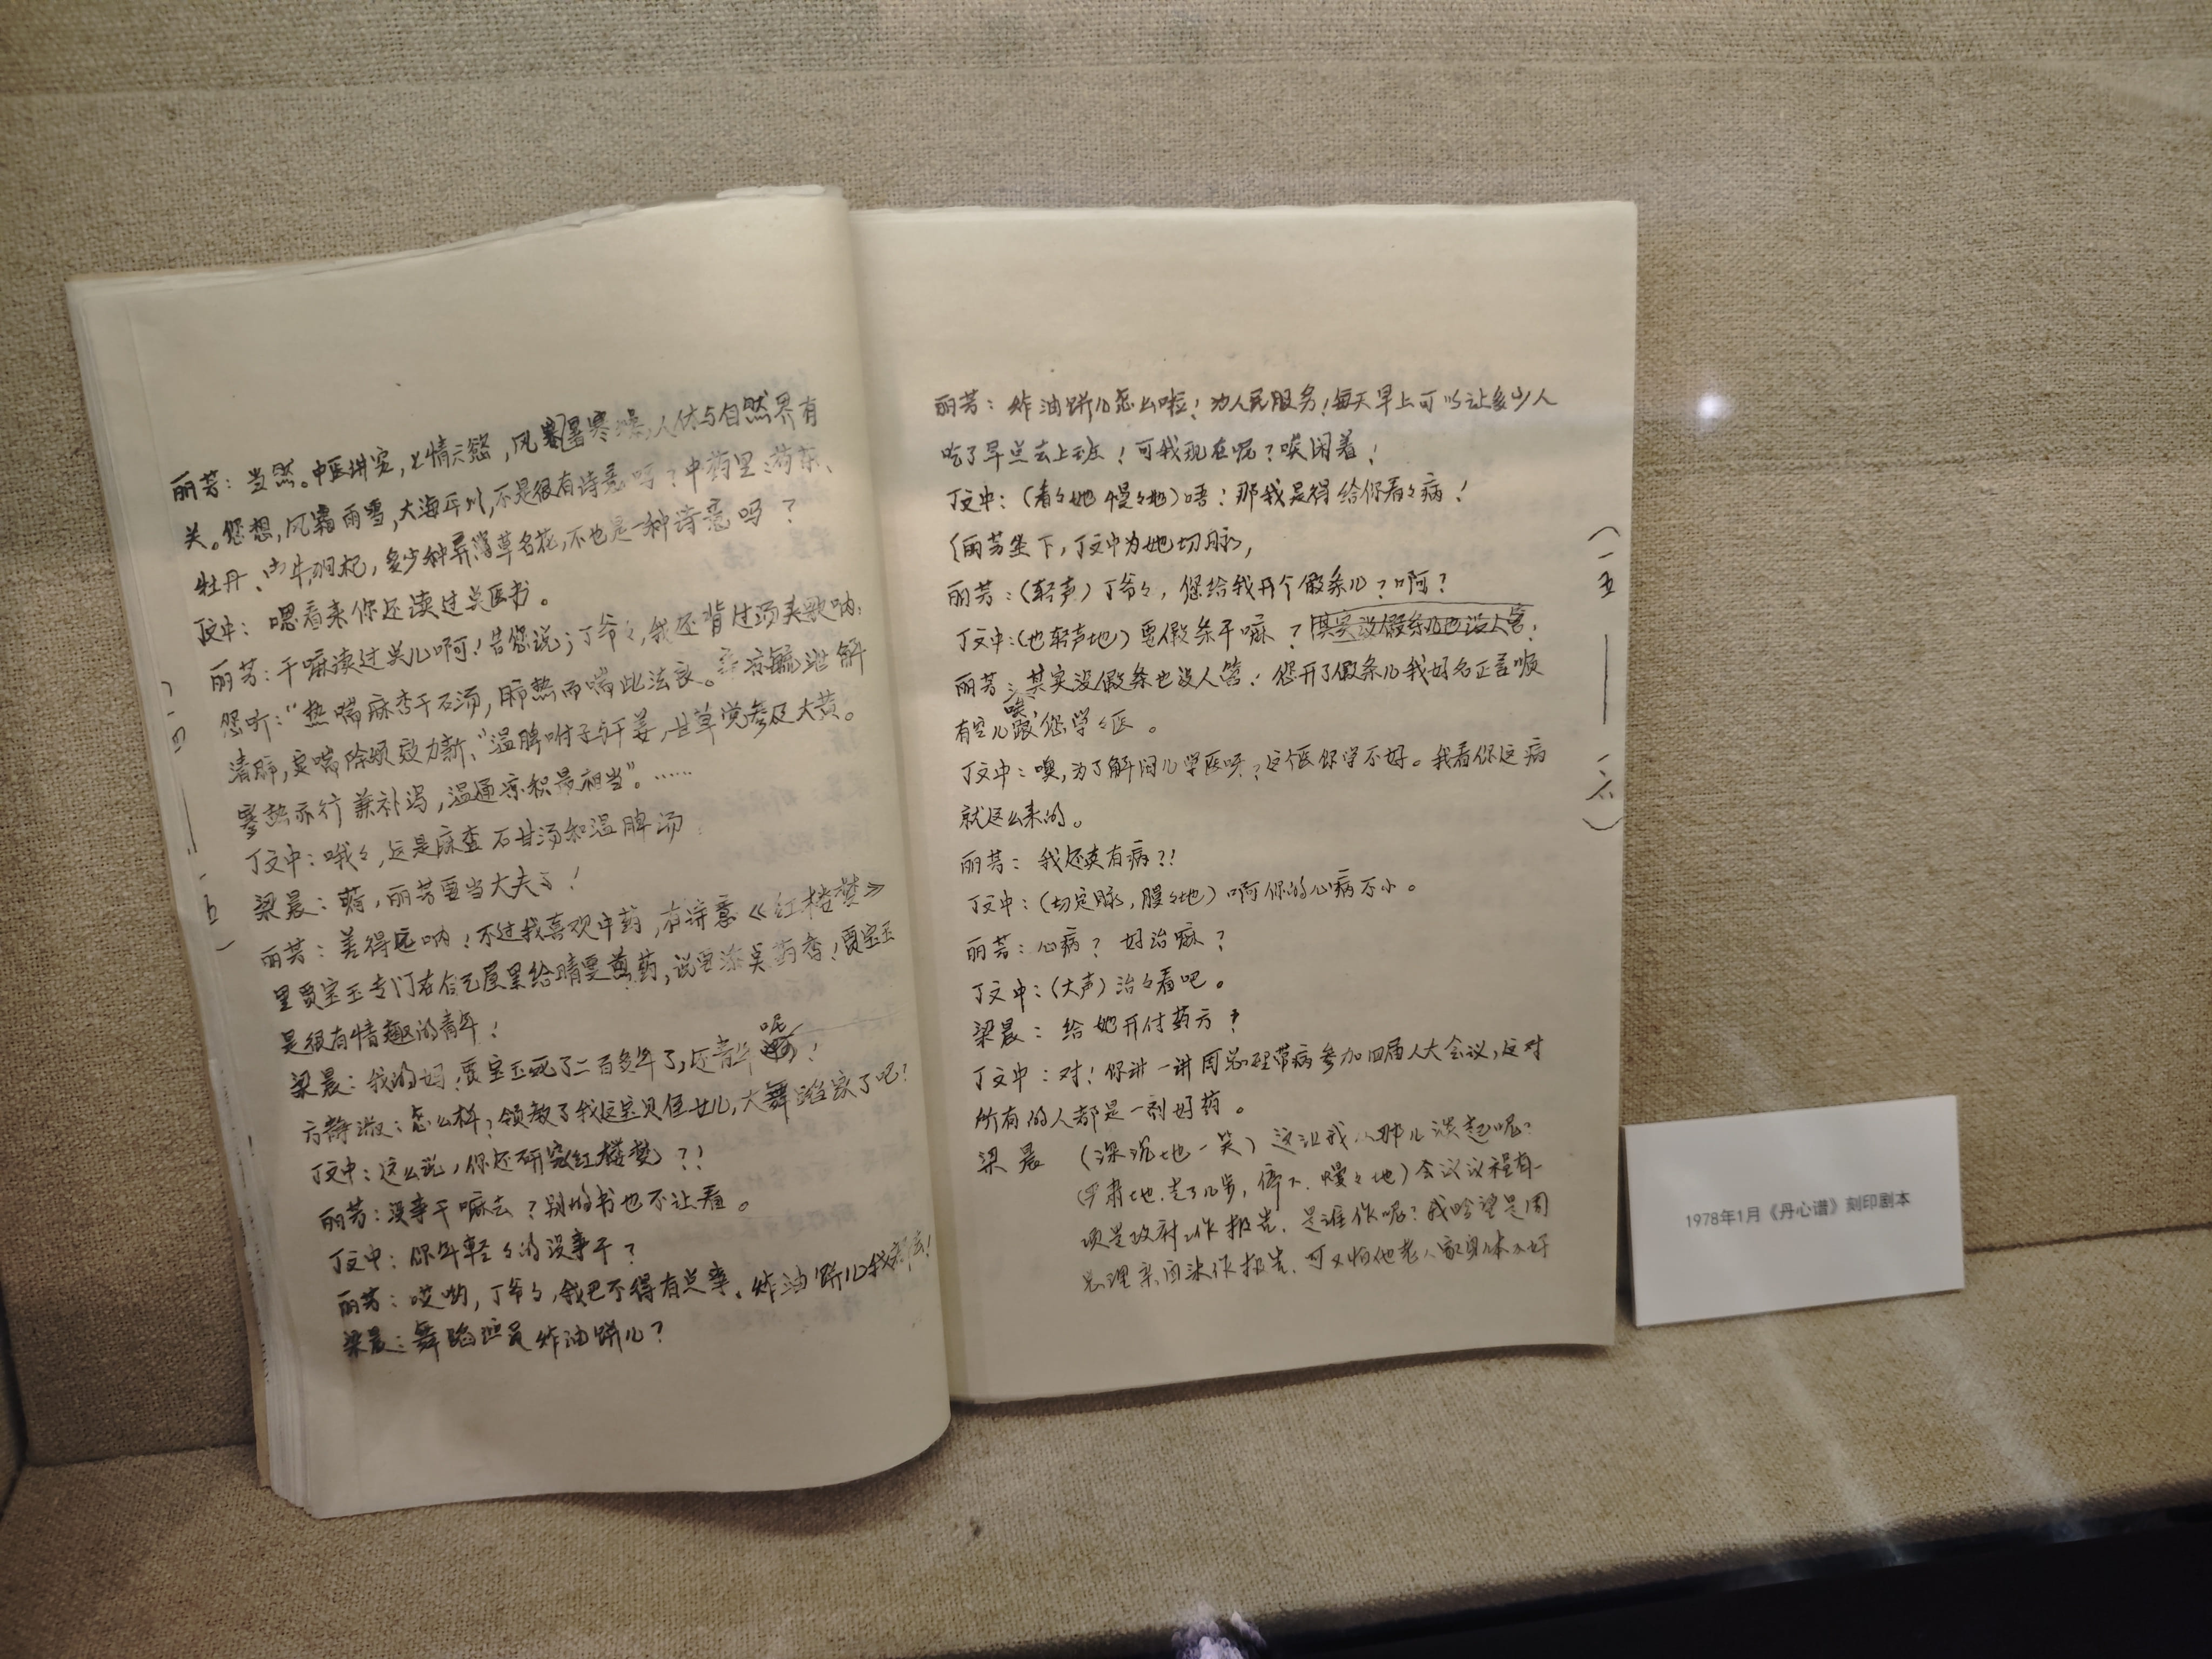 丽芳：当然。中医讲究，七情六慾，风寒暑寒燥，人体与自然界有
关。您想，风霜雨雪，大海平川，不是很有诗意吗？中药里：芍药、
牡丹、内牛、枸杞，多少种异草名花，不也是一种诗意吗？
丁文中：嗯看来你还读过点医书。
丽芳：干嘛读过点儿啊！告您说；丁爷々，我还背过汤头歌呐，
您听：“热喘麻杏干石汤，肺热而喘此法良。辛凉疏泄解
清肺，定喘除烦效力新、”“温脾附子与干姜，甘草党参及大黄。
寒热亦行兼补泻，温通凉积最相当”。……
丁文中：哦々，这是麻杏石甘汤和温脾汤
梁晨：嗬，丽芳要当大夫了！
丽芳：差得远呐！不过我喜欢中药，有诗意《红楼梦》
里贾宝玉专门在自己屋里给晴雯煎药，说要添点药香！贾宝玉
是很有情趣的青年！
梁晨：我的妈，贾宝玉死了二百多年了，还青年呢！
方静淑：怎么样，领教了我这宝贝侄女儿，大舞蹈家了吧？
丁文中：这么说，你还研究《红楼梦》？！
丽芳：没事干嘛去？别的书也不让看。
丁文中：你年轻々的没事干？
丽芳：哎哟，丁爷々，我巴不得有点事。炸油饼儿我都去！
梁晨：舞蹈演员炸油饼儿？
（一四——一五）
丽芳：炸油饼儿怎么啦！为人民服务！每天早上可以让多少人
吃了早点去上班！可我现在呢？唉闲着！
丁文中：（看々她 慢々地）唔！那我是得给你看々病！
〔丽芳坐下，丁文中为她切脉，
丽芳：（轻声）丁爷々，您给我开个假条儿？啊？
丁文中：（也轻声地）要假条干嘛？其实没假条儿也没人管！
丽芳：其实没假条也没人管！您开了假条儿我好名正言顺
唉，
有空儿跟您学々医。
丁文中：噢，为了解闷儿学医呀？这个医你学不好。我看你这病
就这么来的。
丽芳：我还真有病？！
丁文中：（切完脉，慢々地）啊你的心病不小。
丽芳：心病？好治嘛？
丁文中：（大声）治々看吧。
梁晨：给她开付药方？
丁文中：对！你讲一讲周总理带病参加四届人大会议，这对
所有的人都是一剂好药。
梁晨 （深沉地一笑）这让我从那儿谈起呢？
（严肃地，走了几步，停下，慢々地）会议议程有一
项是政府工作报告，是谁作呢？我盼望是周
总理亲自来作报告，可又怕他老人家身体不好
（一五——一六）
1978年1月《丹心谱》刻印剧本